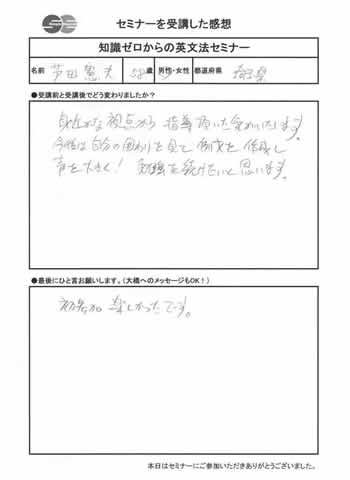 セミナーを受講した感想
知識ゼロからの英文法セミナー
名前 芦田 憲夫 58歳 男性・女性 都道府県 埼玉県
●受講前と受講後でどう変わりましたか？
身近な視点から 指導 頂いた
今後は自分の周りを見て 例文を 作成し
声を大きく！ 勉強を続けたいと思います。
●最後にひと言お願いします。（大橋へのメッセージもOK！）
初参加 楽しかったです。
本日はセミナーにご参加いただきありがとうございました。